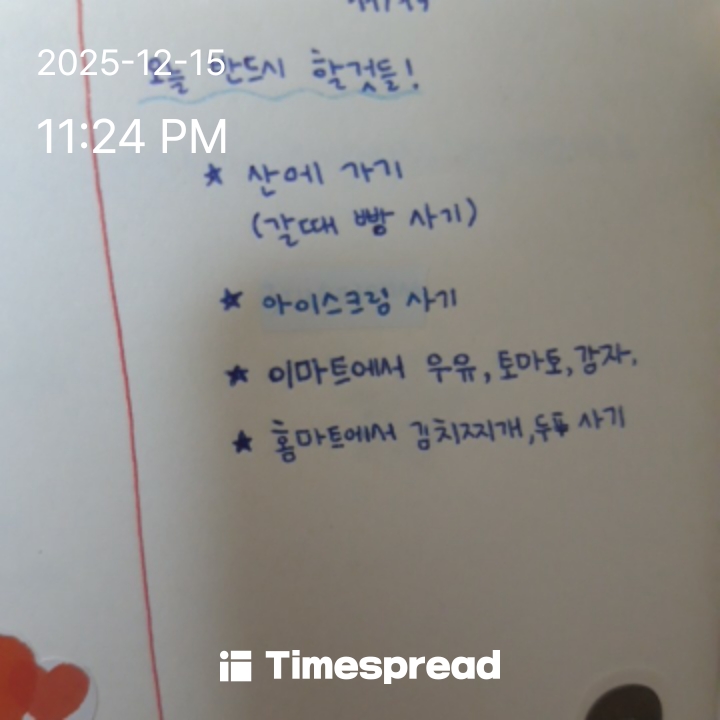 2025-12-15
오늘 반드시 할것들!
11:24 PM
★ 산에 가기
(갈때 빵 사기)
★ 아이스크림 사기
★ 이마트에서 우유, 토마토, 감자,
★ 홈마트에서 김치찌개, 두부 사기
Timespread